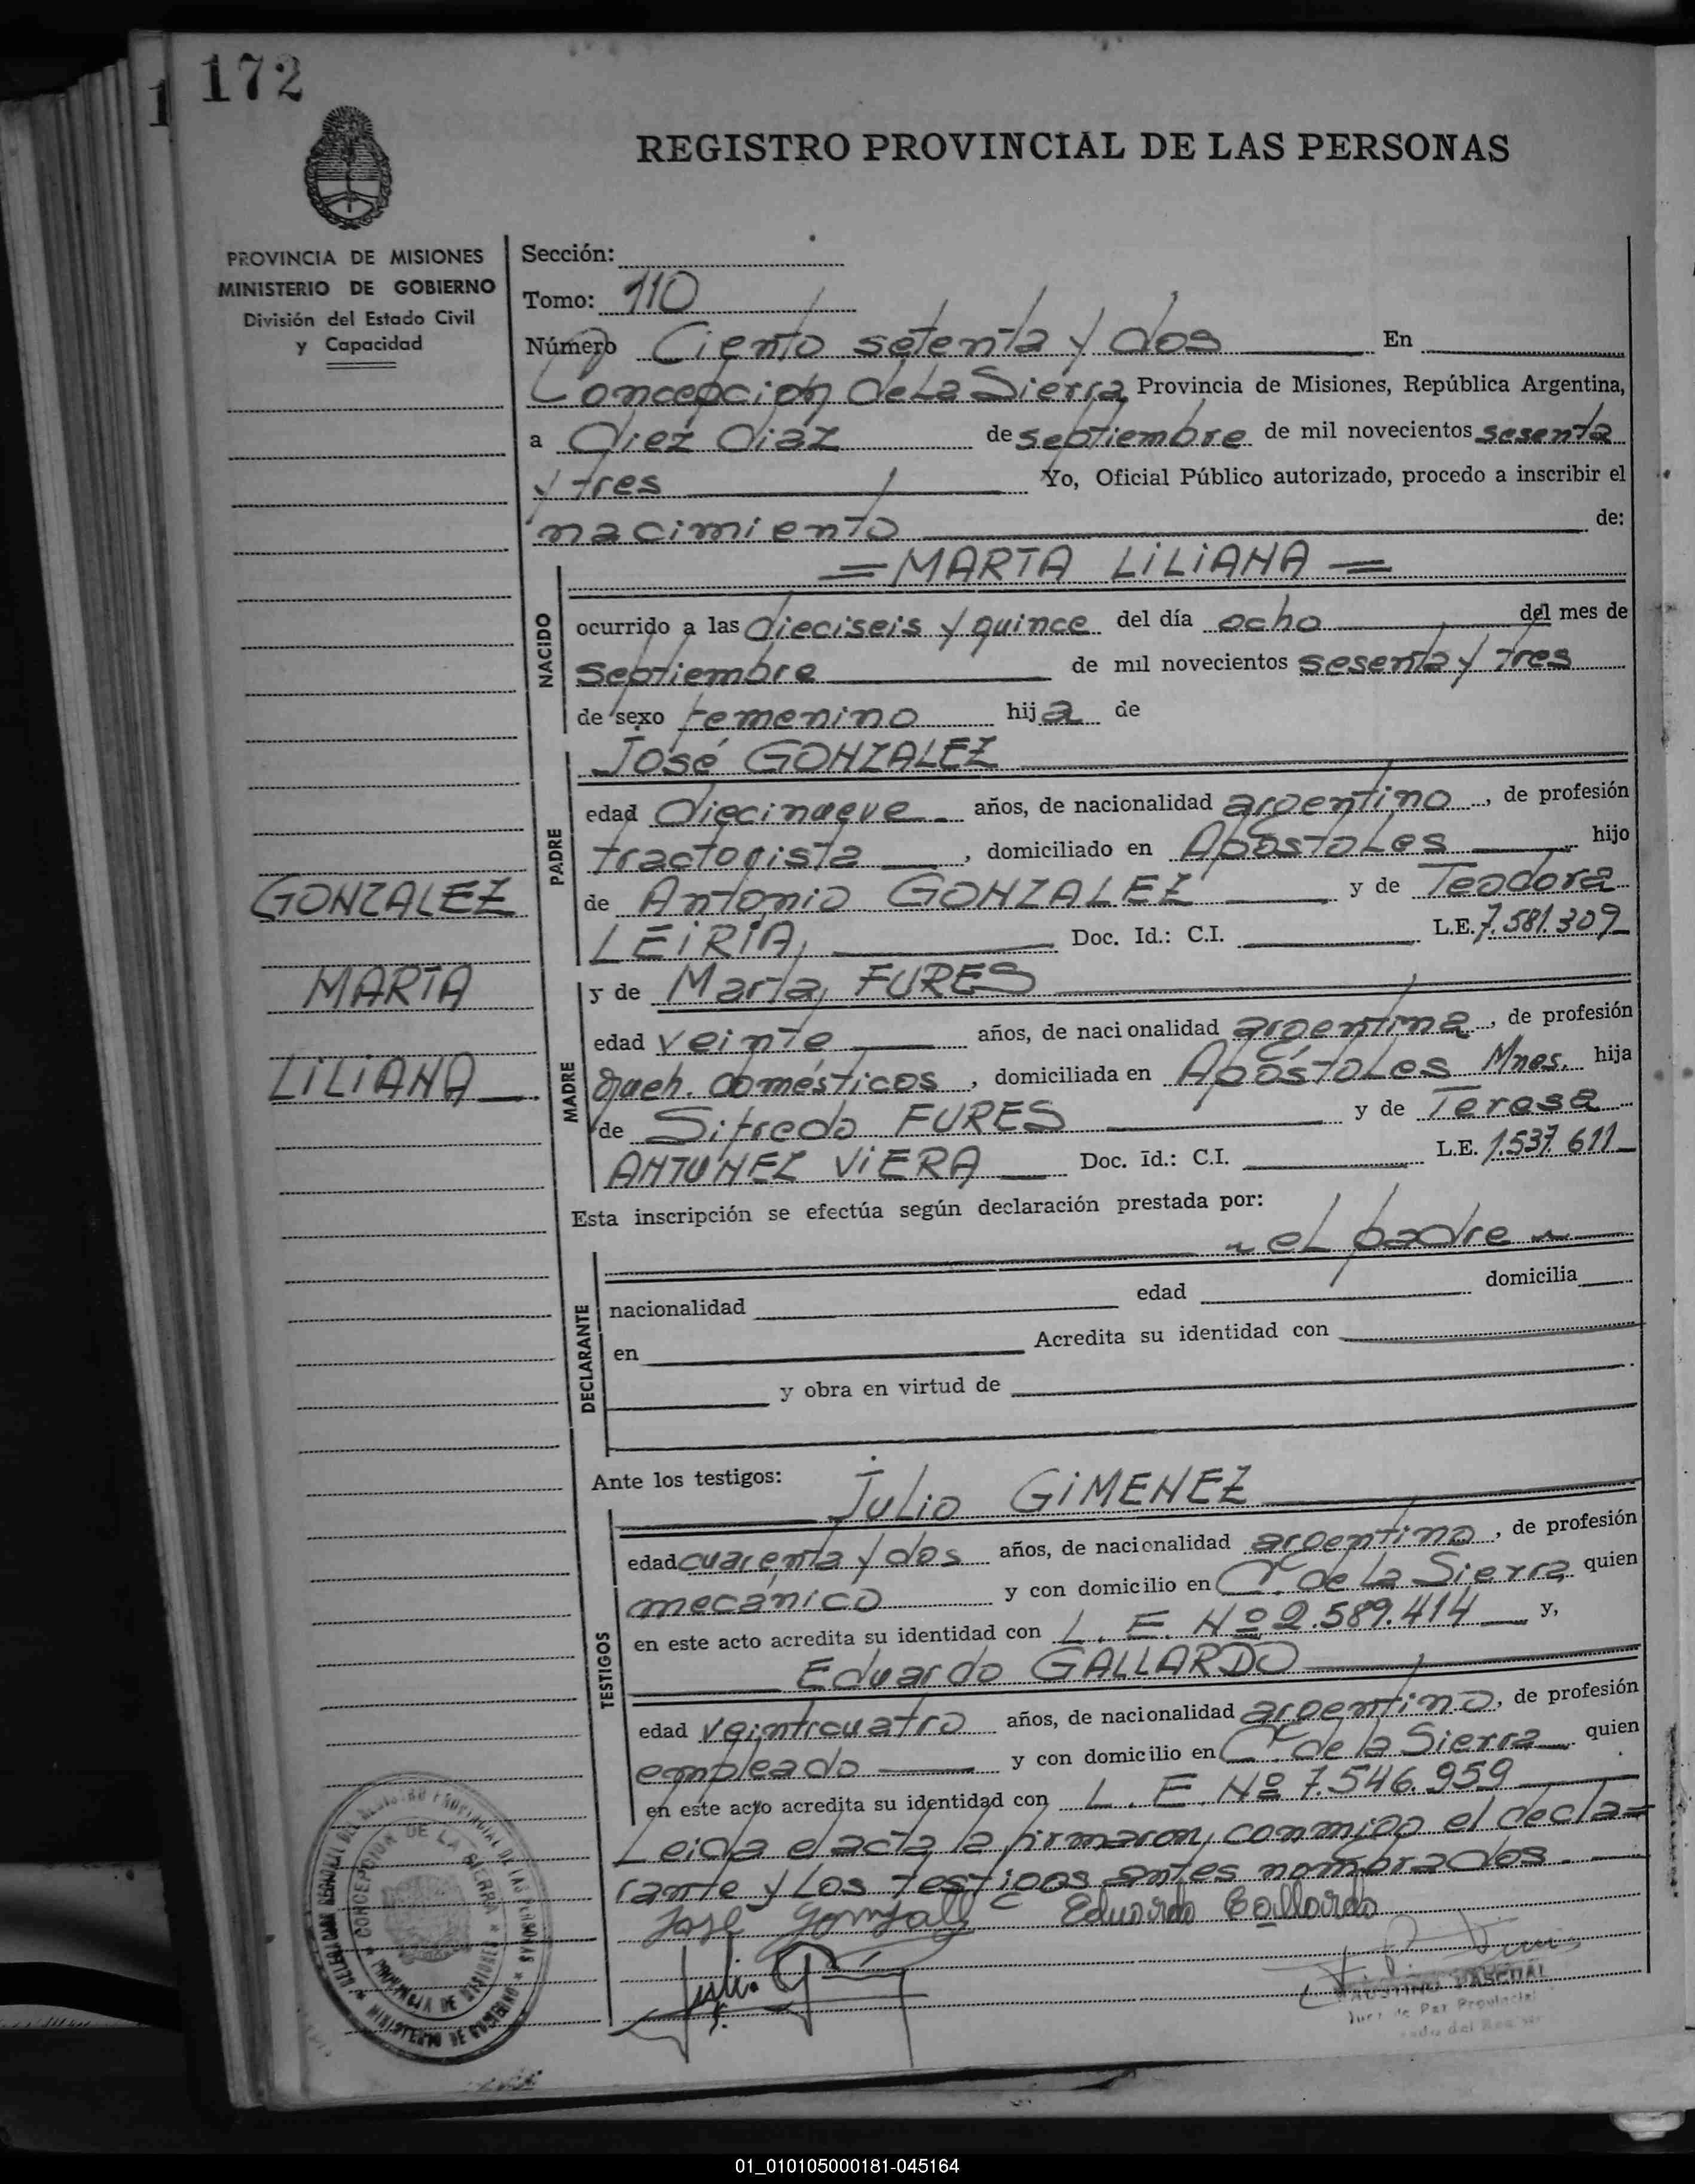 172
REGISTRO PROVINCIAL DE LAS PERSONAS
PROVINCIA DE MISIONES
MINISTERIO DE GOBIERNO
División del Estado Civil
y Capacidad
Sección:
Tomo: 110
Número Ciento setenta y dos En
Concepción de La Sierra Provincia de Misiones, República Argentina,
a diez diaz de septiembre de mil novecientos sesenta
y tres Yo, Oficial Público autorizado, procedo a inscribir el
nacimiento de:
= MARTA LILIANA =
NACIDO
ocurrido a las dieciseis y quince del día ocho del mes de
septiembre de mil novecientos sesenta y tres
de sexo femenino hija de
PADRE
José GONZALEZ
edad diecinueve años, de nacionalidad argentino, de profesión
tractorista, domiciliado en Apóstoles hijo
de Antonio GONZALEZ y de Teodora
LEIRIA, Doc. Id.: C.I. L.E. 7.581.309
GONZALEZ
MARTA
LILIANA
MADRE
y de Marta, FURES
edad veinte años, de nacionalidad argentina, de profesión
queh. domésticos, domiciliada en Apóstoles Mnes. hija
de Sifredo FURES y de Teresa
ANTUNEZ VIERA Doc. Id.: C.I. L.E. 1.537.611
Esta inscripción se efectúa según declaración prestada por:
~ el padre ~
DECLARANTE
nacionalidad edad domicilia
en Acredita su identidad con
y obra en virtud de
Ante los testigos: Julio GIMENEZ
TESTIGOS
edad cuarenta y dos años, de nacionalidad argentino, de profesión
mecánico y con domicilio en C. de la Sierra quien
en este acto acredita su identidad con L. E. Nº 2.589.414 y,
Eduardo GALLARDO
edad veinticuatro años, de nacionalidad argentino, de profesión
empleado y con domicilio en C. de la Sierra quien
en este acto acredita su identidad con L. E. Nº 7.546.959
Leida el acta la firmaron, conmigo el decla=
rante y los testigos antes nombrados.
José Eduardo Gallardo
DELEGACION REGIONAL DEL REGISTRO PROVINCIAL DE LAS PERSONAS
CONCEPCION DE LA SIERRA
PROVINCIA DE MISIONES
MINISTERIO DE GOBIERNO
FAUSTINO PASCUAL
Juez de Paz Provincial
01_010105000181-045164